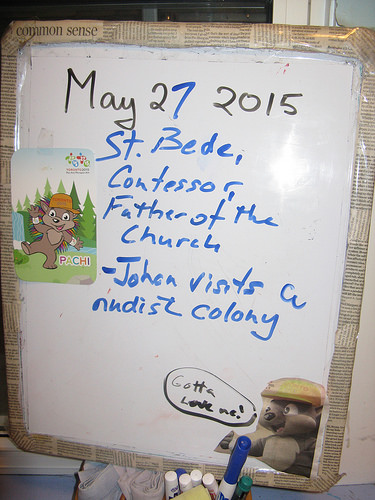 common sense
May 27 2015
St. Bede,
Confessor,
Father of the
Church
-Johan visits a
nudist colony
PACHI
Gotta
Love me!